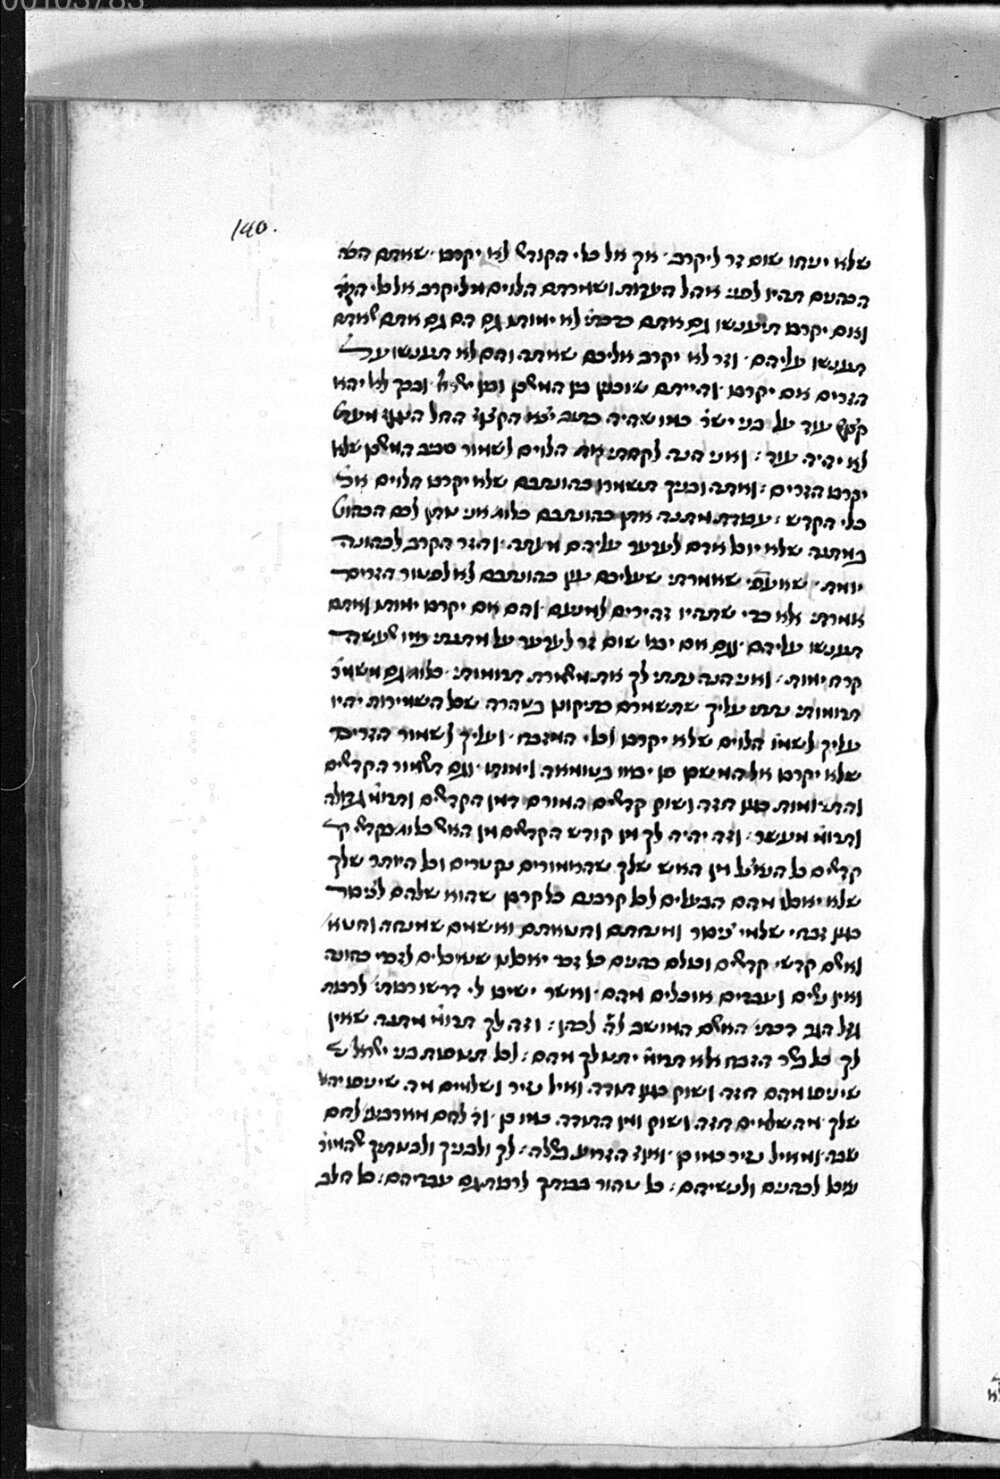 00103783
140.
שלא יניחו שום זר ליקרב. אך אל כלי הקודש לא יקרבו. שאתם
הכהנים תהיו לפני אהל העדות ושמרתם הלוים מליקרב אל כלי
ואם יקרבו תיענשו גם אתם כדכת' לא ימותו גם הם גם אתם שאתם
תענשו עליהם. וזר לא יקרב אליכם שאתה והם לא תענשו על
הזרים אם יקרבו. והייתם שוכנין מן המשכן ומן
קצף עוד על בני ישר' כמו שהיה כדכת' יצא הקצף החל הנגף מעתה
לא יהיה עוד: ואני הנה לקחתי את הלוים לשמור סביב המשכן שלא
יקרבו הזרים: ואתה ובניך תשמרו כהונתכם שלא יקרבו הלוים אל
כלי הקדש: עבודת מתנה אתן כהונתכם כלו' אני נותן לכם הכהונה
במתנה שלא יוכל אדם לערער עליהם מעתה. והזר הקרב לכהונה
יומת. שאעפ"י שאמרתי שעליכם עון כהונתכם לא לפטור הזרים
אמרתי אלא כדי שתהיו זהירים למונעם. והם אם יקרבו ימותו ואתם
תענשו עליהם. וגם אם יבא שום זר לערער על מתנתי כמו שעשה
קרח ימות: ואני הנה נתתי לך את משמרת תרומותי. כלו' גם משמר
תרומותי נתתי עליך שתשמרם כתיקונן בטהרה שכל השמירות יהיו
עליך לשמור הלוים שלא יקרבו לכלי המזבח. ועליך לשמור הזרים
שלא יקרבו אל המשכן פן יבואו בטומאה וימותו. וגם תשמור הקדשים
והתרומות כגון חזה ושוק קדשים המורם מן הקדשים ותרומ' גדולה
ותרומ' מעשר: וזה יהיה לך מן קודש הקדשים מן האש כלו' בקדשי
קדשים כל הניצל מן האש שלך שהאימורים נקטרים וכל היותר שלך
שלא יאכלו מהם הבעלים לכל קרבנם כל קרבן שהוא שלהם לציבור
כגון זבחי שלמי ציבור ומנחתם וחטאתם ואשמם שמנחה וחטא'
ואשם קדשי קדשים וכולם כהנים כל זכר יאכלנו שנאכלים לזכרי כהונה
ואין נשים ועבדים אוכלים מהם. ואשר ישיבו לי דרשו רבותי' לרבות
גזל הגר דכתי' האשם המושב לה' לכהן: וזה לך תרומ' מתנה שאין
לך כל בשר הזבח אלא תרומ' יתנו לך מהם: לכל תנופות בני ישראל
שיניפו מהם חזה ושוק כגון תודה. ואיל נזיר ושלמים מה שיניפו יהא
שלך. מה שלמים חזה ושוק ומן התודה כמו כן. וד' לחם מארבעי' לחם
שבה. ומאיל נזיר כמו כן. ועוד הזרוע בשלה: לך ולבניך ולבנותיך
נאכל לכהנים ולנשיהם: כל טהור בביתך לרבות גם עבדיהם: כל חלב